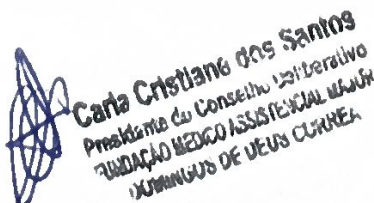 Carla Cristiane dos Santos
Presidente do Conselho Deliberativo
FUNDAÇÃO MÉDICO ASSISTENCIAL MAJOR
DOMINGOS DE DEUS CORRÊA